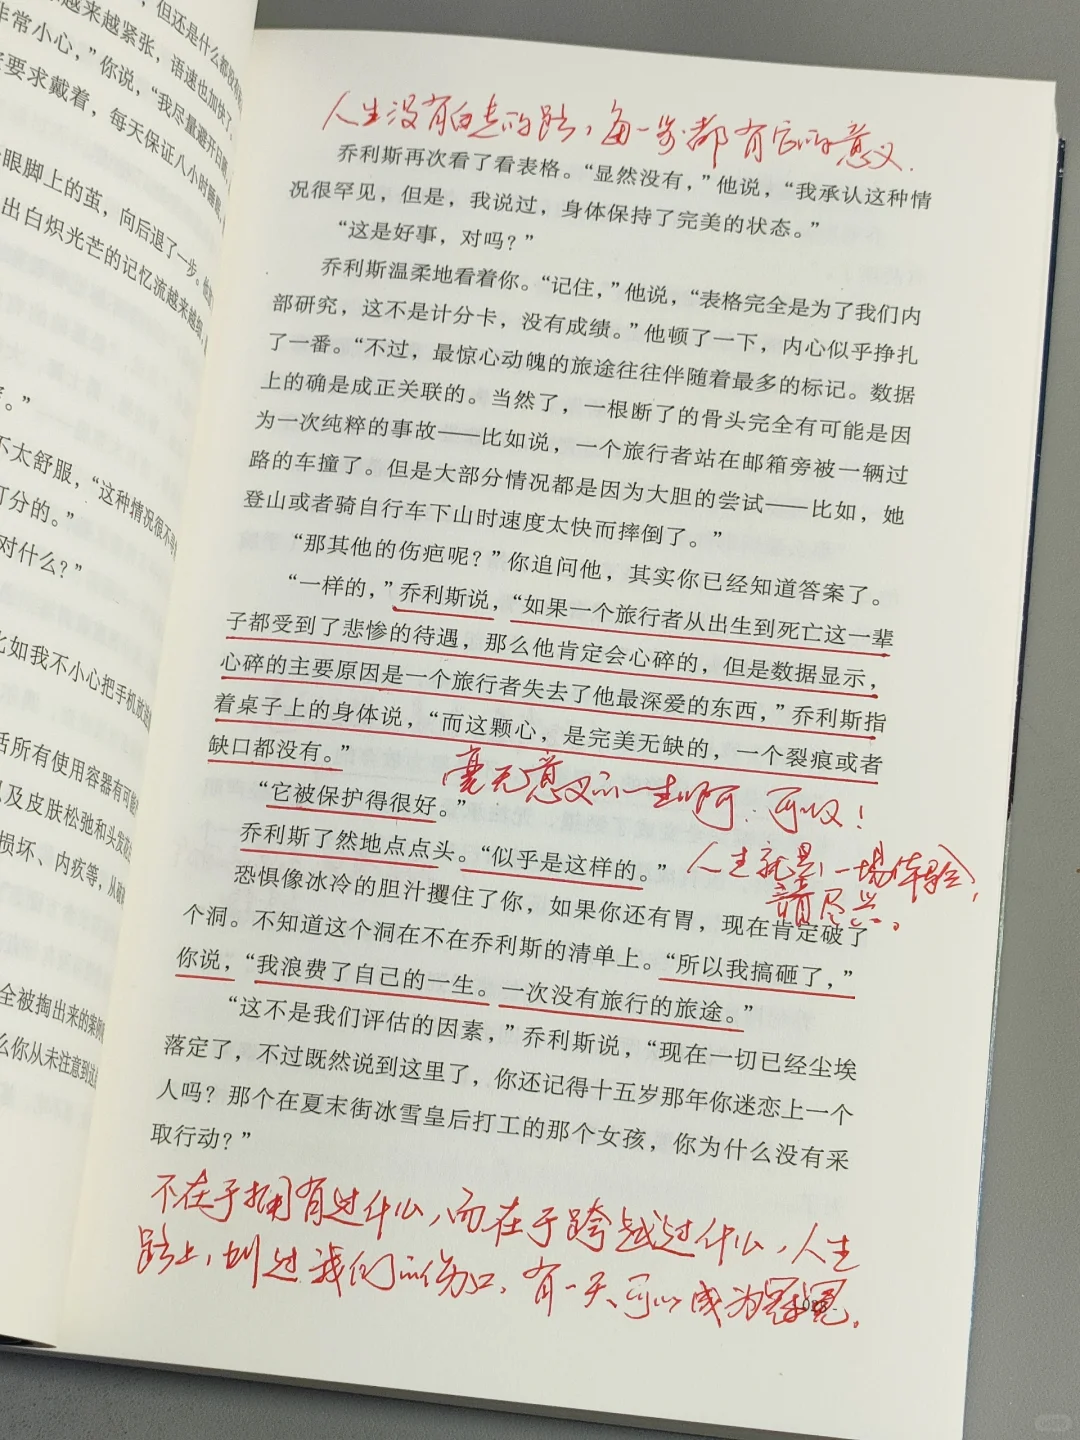 但还是什么都没有
越来越紧张，语速也加快了，
非常小心，”你说，“我尽量避开日
要求戴着，每天保证八小时睡眠，
眼脚上的茧，向后退了一步。
出白炽光芒的记忆流越来越
。”
不太舒服，“这种情况很不
打分的。”
对什么？”
比如我不小心把手机放
活所有使用容器有可能
以及皮肤松弛和头发
损坏、内疚等，从
全被掏出来的案例
么你从未注意到
人生没有白走的路，每一步都有它的意义.
乔利斯再次看了看表格。“显然没有，”他说，“我承认这种情
况很罕见，但是，我说过，身体保持了完美的状态。”
“这是好事，对吗？”
乔利斯温柔地看着你。“记住，”他说，“表格完全是为了我们内
部研究，这不是计分卡，没有成绩。”他顿了一下，内心似乎挣扎
了一番。“不过，最惊心动魄的旅途往往伴随着最多的标记。数据
上的确是成正关联的。当然了，一根断了的骨头完全有可能是因
为一次纯粹的事故——比如说，一个旅行者站在邮箱旁被一辆过
路的车撞了。但是大部分情况都是因为大胆的尝试——比如，她
登山或者骑自行车下山时速度太快而摔倒了。”
“那其他的伤疤呢？”你追问他，其实你已经知道答案了。
“一样的，”乔利斯说，“如果一个旅行者从出生到死亡这一辈
子都受到了悲惨的待遇，那么他肯定会心碎的，但是数据显示，
心碎的主要原因是一个旅行者失去了他最深爱的东西，”乔利斯指
着桌子上的身体说，“而这颗心，是完美无缺的，一个裂痕或者
缺口都没有。”
毫无意义的一生啊.可以！
“它被保护得很好。”
乔利斯了然地点点头。“似乎是这样的。”
人生就是一场体验，
请尽兴。
恐惧像冰冷的胆汁攫住了你，如果你还有胃，现在肯定破了
个洞。不知道这个洞在不在乔利斯的清单上。“所以我搞砸了，”
你说，“我浪费了自己的一生。一次没有旅行的旅途。”
“这不是我们评估的因素，”乔利斯说，“现在一切已经尘埃
落定了，不过既然说到这里了，你还记得十五岁那年你迷恋上一个
人吗？那个在夏末街冰雪皇后打工的那个女孩，你为什么没有采
取行动？”
不在于拥有过什么，而在于跨越过什么，人生
路上，划过我们的伤口，有一天可以成为冠冕。